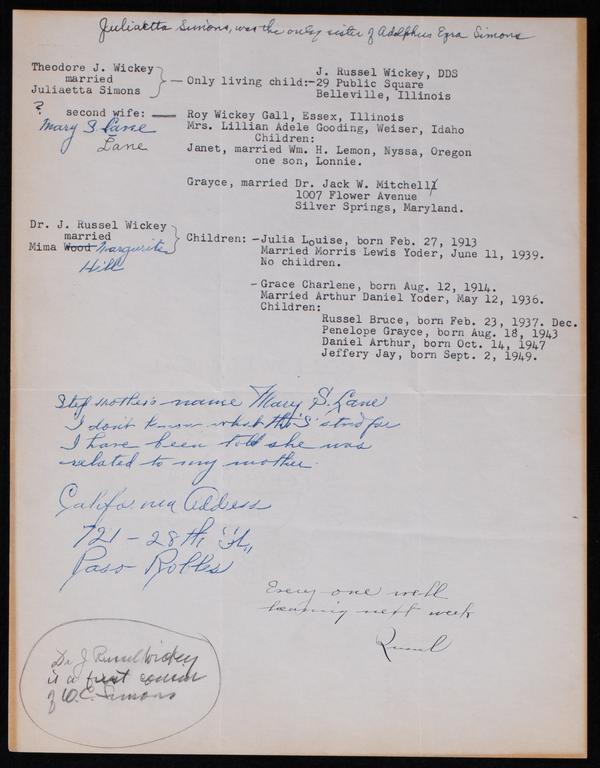 Juliaetta Simons, was the only sister of Adolphus Ezra Simons
Theodore J. Wickey
married
Juliaetta Simons
— Only living child:-
J. Russel Wickey, DDS
29 Public Square
Belleville, Illinois
? second wife: —
Mary S. Lane
Lane
Roy Wickey Gall, Essex, Illinois
Mrs. Lillian Adele Gooding, Weiser, Idaho
Children:
Janet, married Wm. H. Lemon, Nyssa, Oregon
one son, Lonnie.
Grayce, married Dr. Jack W. Mitchell
1007 Flower Avenue
Silver Springs, Maryland.
Dr. J. Russel Wickey
married
Mima Wood Margurite
Hill
Children: -Julia Louise, born Feb. 27, 1913
Married Morris Lewis Yoder, June 11, 1939.
No children.
-Grace Charlene, born Aug. 12, 1914.
Married Arthur Daniel Yoder, May 12, 1936.
Children:
Russel Bruce, born Feb. 23, 1937. Dec.
Penelope Grayce, born Aug. 18, 1943
Daniel Arthur, born Oct. 14, 1947
Jeffery Jay, born Sept. 2, 1949.
Step mothers name Mary S. Lane
I don't know what the "S" stood for
I have been told she was
related to my mother.
California Address
721 - 28th St.,
Paso Robles
Every one well
leaving next week
Russel
Dr J. Russel Wickey
is a first cousin
of W.C. Simons